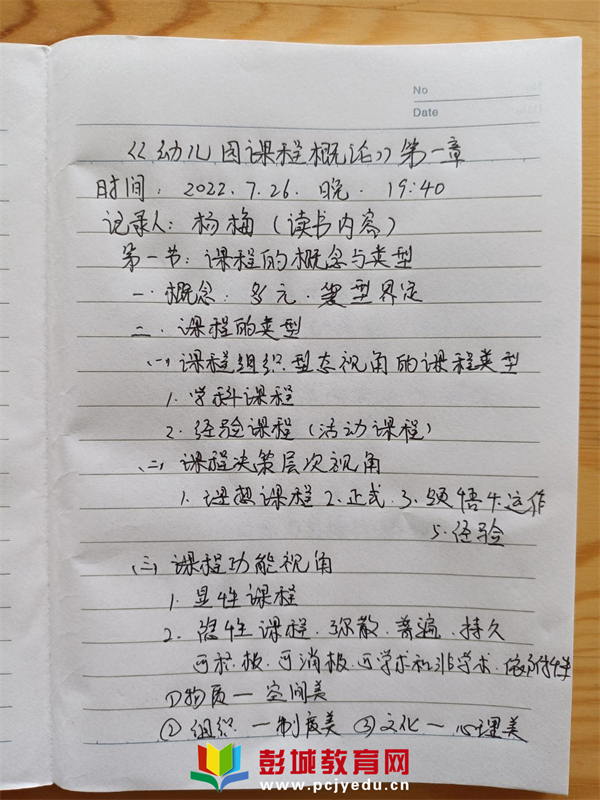 No
Date
《幼儿园课程概论》第一章
时间：2022.7.26.晚.19:40
记录人：杨梅（读书内容）
第一节：课程的概念与类型
一.概念：多元.复型界定
二.课程的类型
(一)课程组织型态视角的课程类型
1.学科课程
2.经验课程（活动课程）
(二)课程决策层次视角
1.理想课程 2.正式.3.领悟 4.运作
5.经验
(三)课程功能视角
1.显性课程
2.隐性课程.弥散.普遍.持久
可积极.可消极.可学术和非学术.依条件性
①物质一空间美
②组织一制度美 ③文化一心理美
彭城教育网
www.pcjyedu.cn